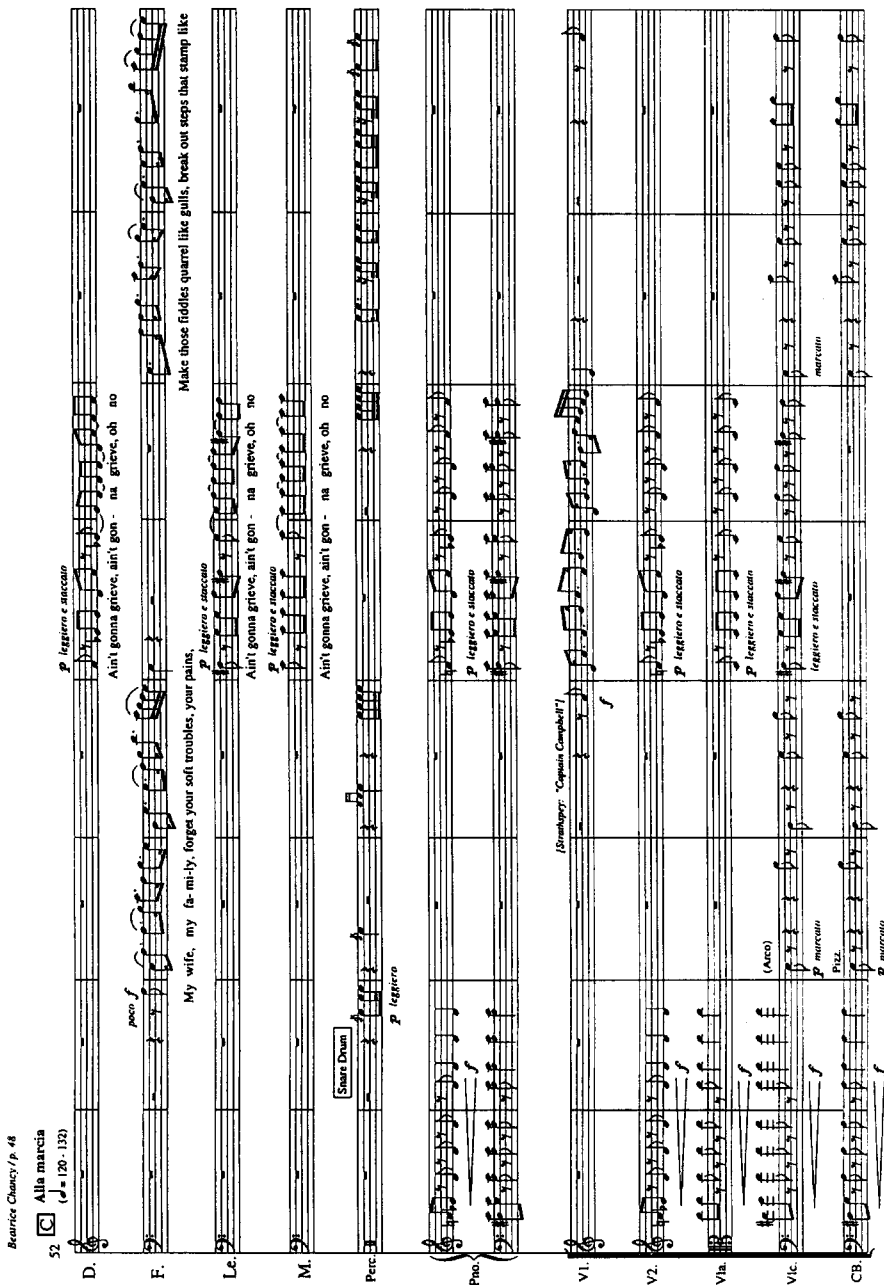 Beatrice Chancy / p. 48
52
C Alla marcia
(♩ = 120 - 132)
D.
p leggiero e staccato
Ain't gonna grieve, ain't gon - na grieve, oh no
F.
poco f
My wife, my fa-mi-ly, forget your soft troubles, your pains,
Make those fiddles quarrel like gulls, break out steps that stamp like
Le.
p leggiero e staccato
Ain't gonna grieve, ain't gon - na grieve, oh no
M.
p leggiero e staccato
Ain't gonna grieve, ain't gon - na grieve, oh no
Perc.
Snare Drum
p leggiero
Pno.
f
p leggiero e staccato
V1.
[Strathspey: "Captain Campbell"]
f
V2.
f
p leggiero e staccato
Vla.
f
p leggiero e staccato
Vlc.
f
(Arco)
p marcato
leggiero e staccato
marcato
CB.
f
Pizz.
p marcato